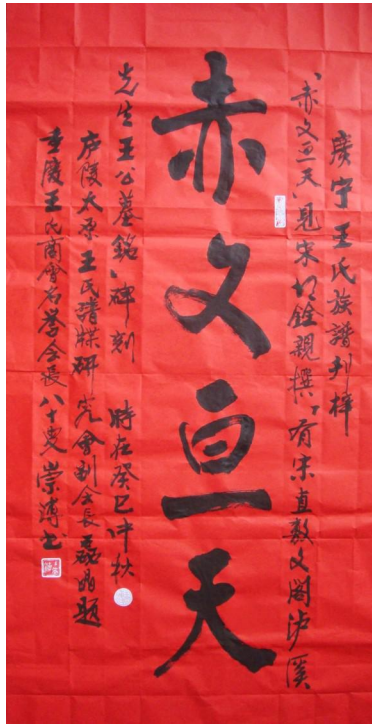 廣宁王氏族譜刊梓
「赤文亘天」見宋胡銓親撰「有宋直敷文閣泸溪
赤文亘天
先生王公墓銘」碑刻 時在癸巳仲秋
庐陵太原王氏譜牒研究會副会長磊晶題
重慶王氏商會名誉会長八十叟崇溥书